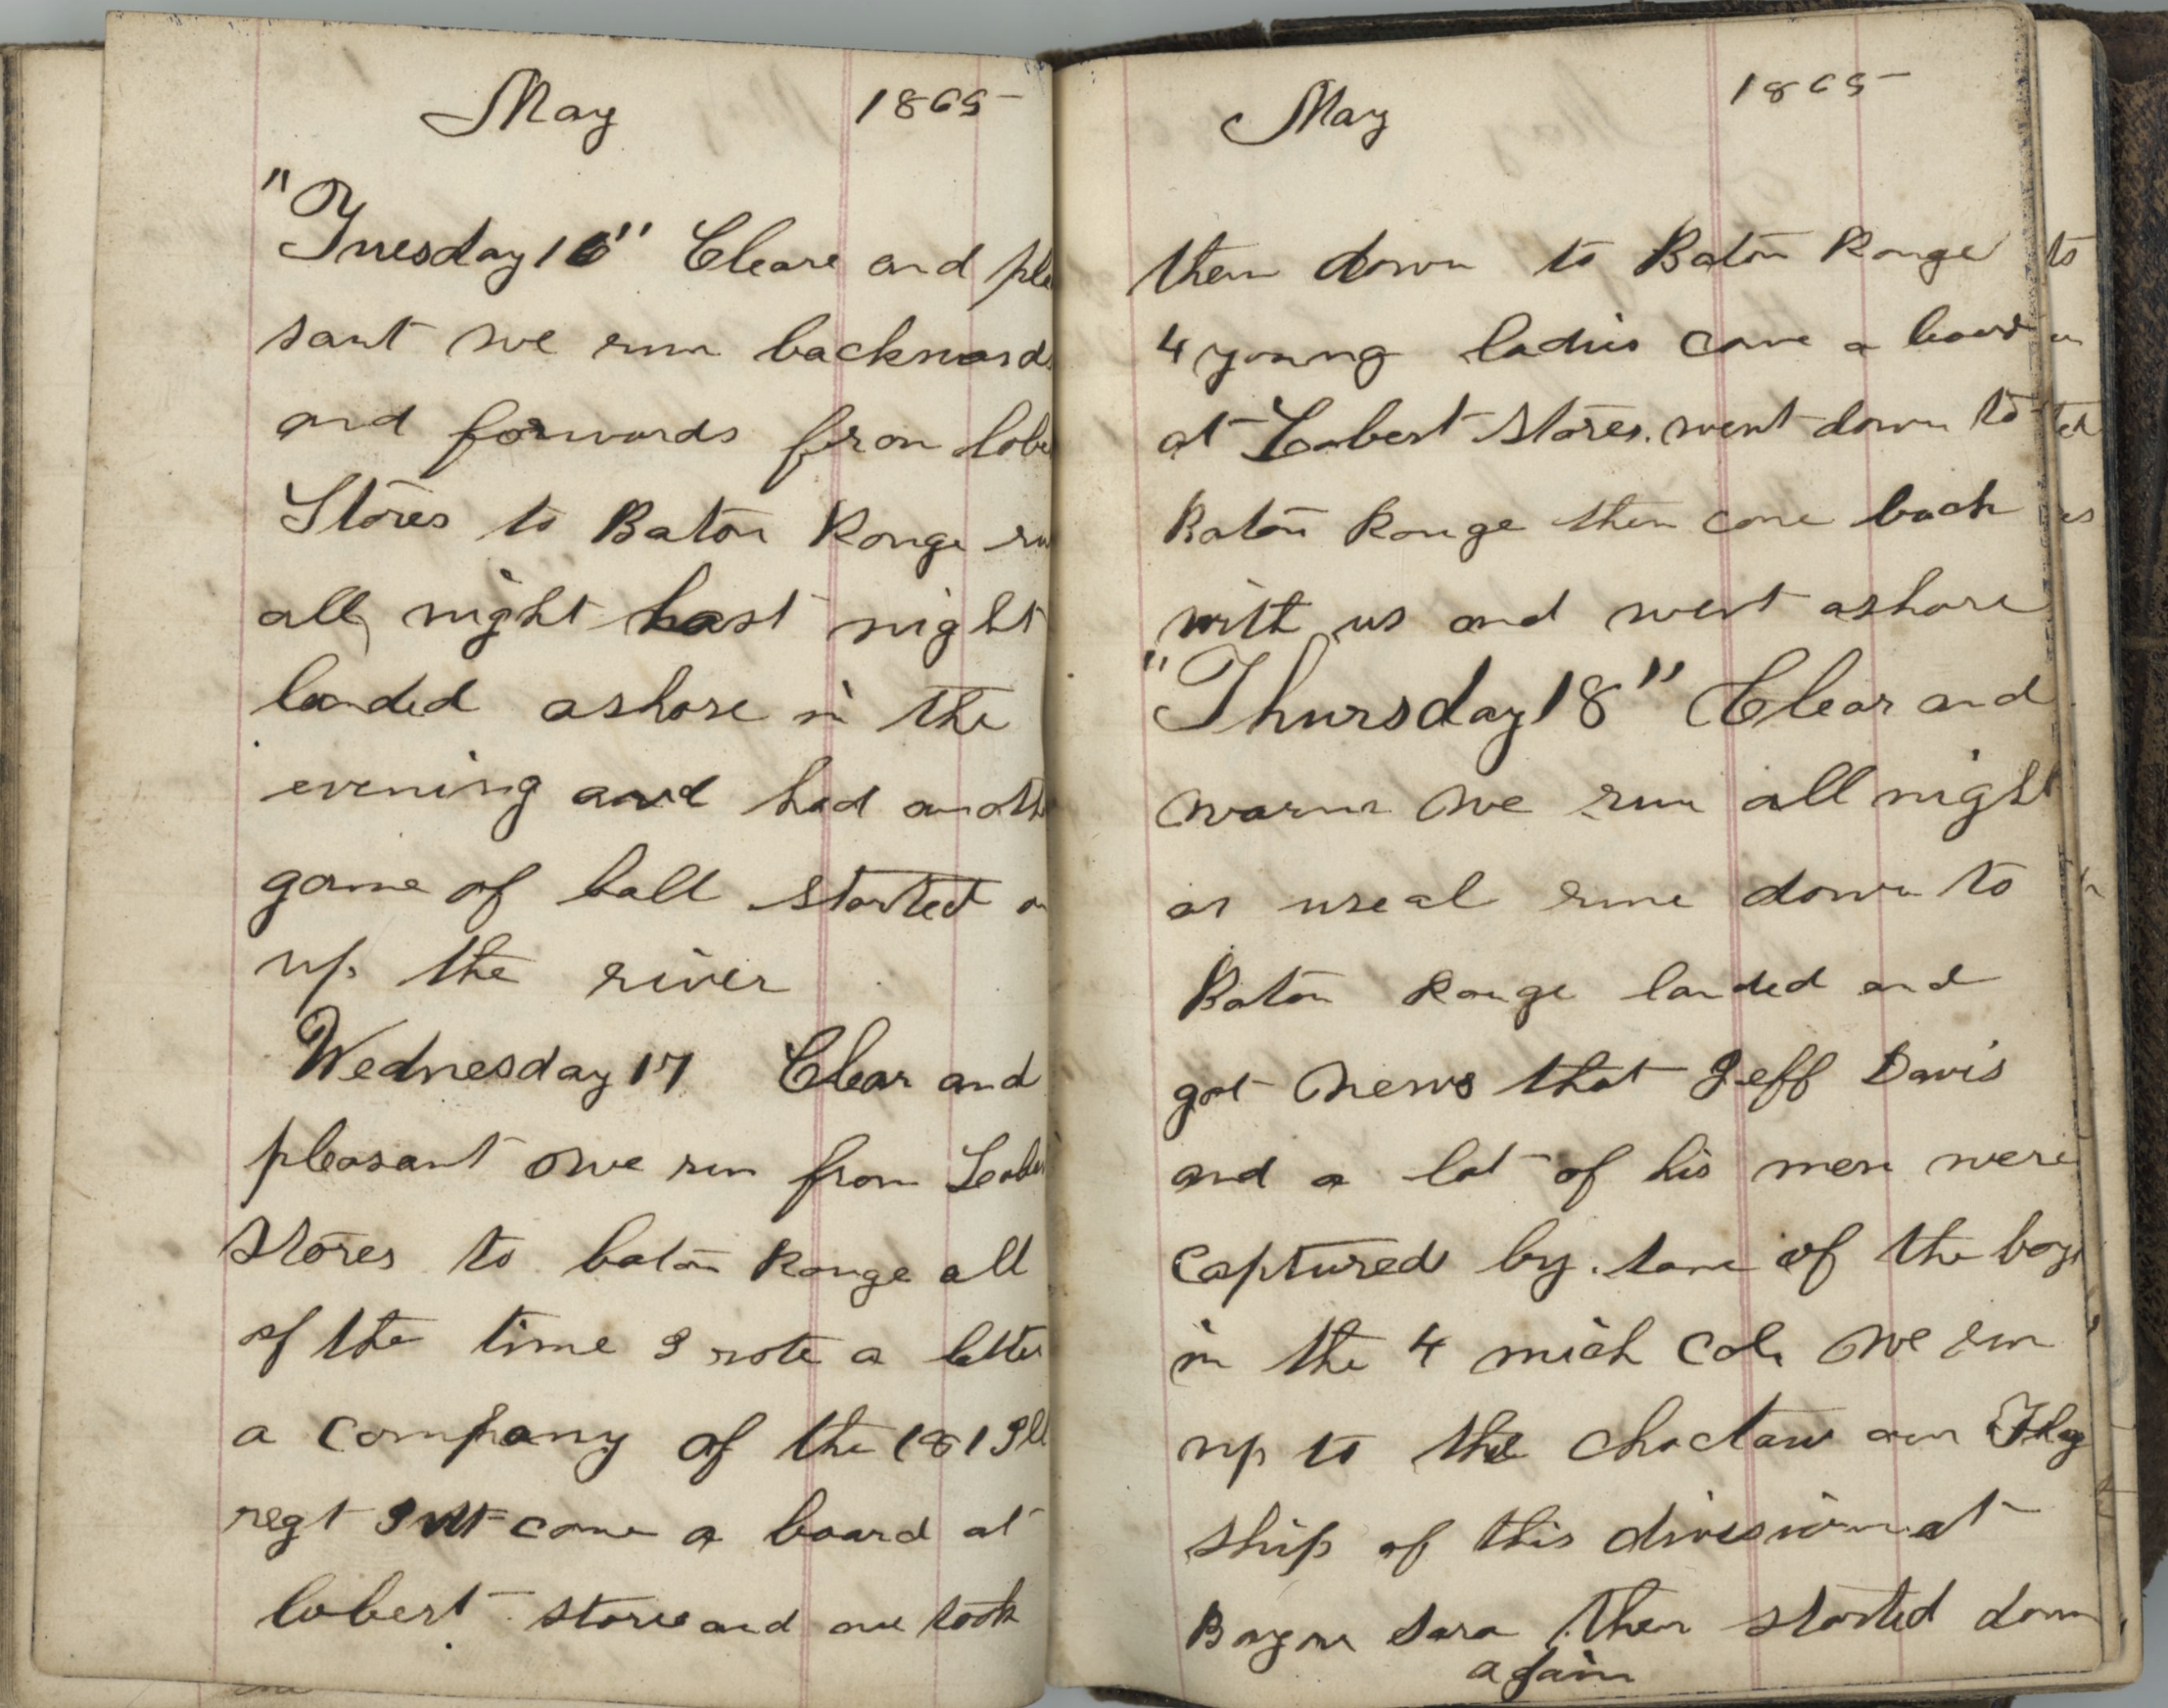 May 1865
"Tuesday 16" Cleare and plea
sant we run backwards
and forwards from lobe
Stores to Baton Rouge ru
all night last night
landed ashore in the
evening and had anoth
game of ball started on
up the river
Wednesday 17 Clear and
pleasant we run from
Stores to baton Rouge all
of the time I rote a letter
a company of the 181 Ill
regt come a board at
lobert stores and we took
May 1865
them down to Baton Rouge
4 young ladies came a board
at Lobert Stores. went down to
Baton Rouge then come back
with us and went ashore
"Thursday 18" Clear and
warm we run all night
as useal rune down to
Baton Rouge landed and
got news that Jeff Davis
and a lot of his men were
captured by some of the boys
in the 4 mich Cal. we run
up to the Choctaw our Flag
ship of this division at
Bayou Sara then started down
again